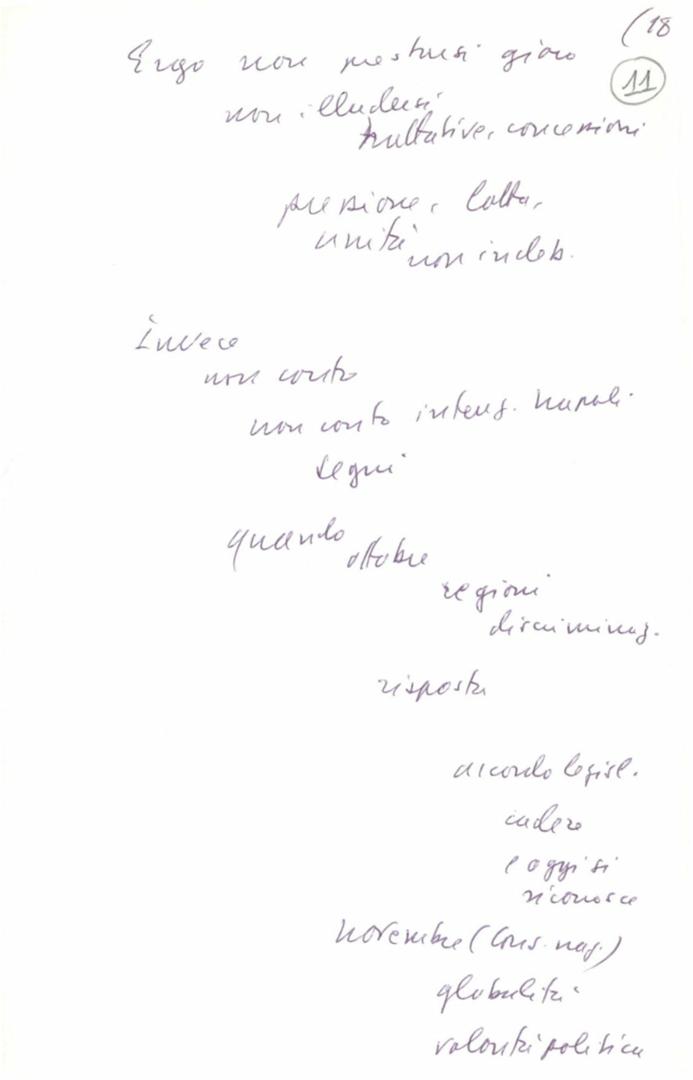 (18
11
Ergo non prestarsi gioco
non illudersi
trattative, concessioni
pressione, lotta,
unità
non indeb.
Invece
non conto
non conto inteng. Napoli
segni
quando
ottobre
regioni
discriminaz.
risposta
accordo legisl.
cadere
e oggi si
riconosce
novembre (Cons. naz.)
globalità
volontà politica